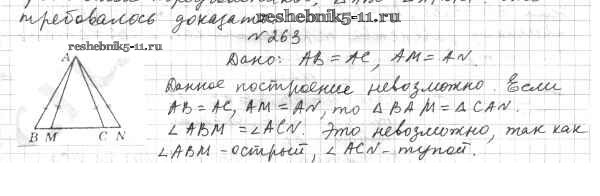 требовалось доказать.
reshebnik5-11.ru
№263
reshebnik5-11.ru
Дано: AB = AC, AM = AN.
Данное построение невозможно. Если
AB = AC, AM = AN, то △BAM = △CAN.
∠ABM = ∠ACN. Это невозможно, так как
∠ABM - острый, ∠ACN - тупой.
A
B M C N